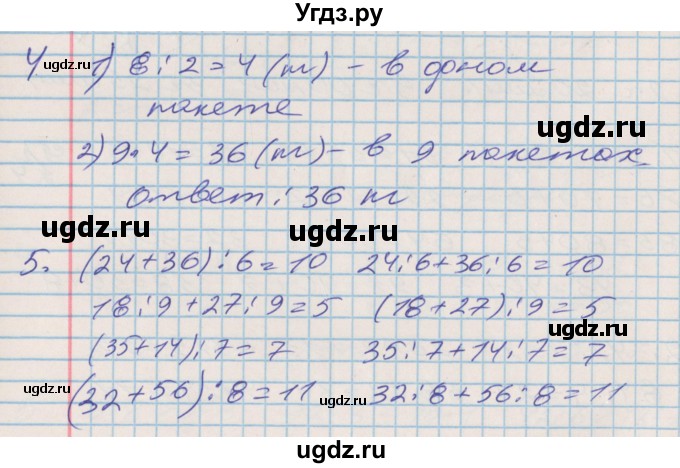 Угдз.ру
4 1) 8 : 2 = 4 (т) - в доном
пакете
2) 9 • 4 = 36 (т) - в 9 пакетах.
ответ : 36 кг
5. (24+36) : 6 = 10 24 : 6 + 36 : 6 = 10
18 : 9 + 27 : 9 = 5 (18 + 27) : 9 = 5
(35+14) : 7 = 7 35 : 7 + 14 : 7 = 7
(32 + 56) : 8 = 11 32 : 8 + 56 : 8 = 11
ugdz.ru
ugdz.ru
ugdz.ru
ugdz.ru
ugdz.ru
ugdz.ru
ugdz.ru
ugdz.ru
ugdz.ru
ugdz.ru
ugdz.ru
ugdz.ru